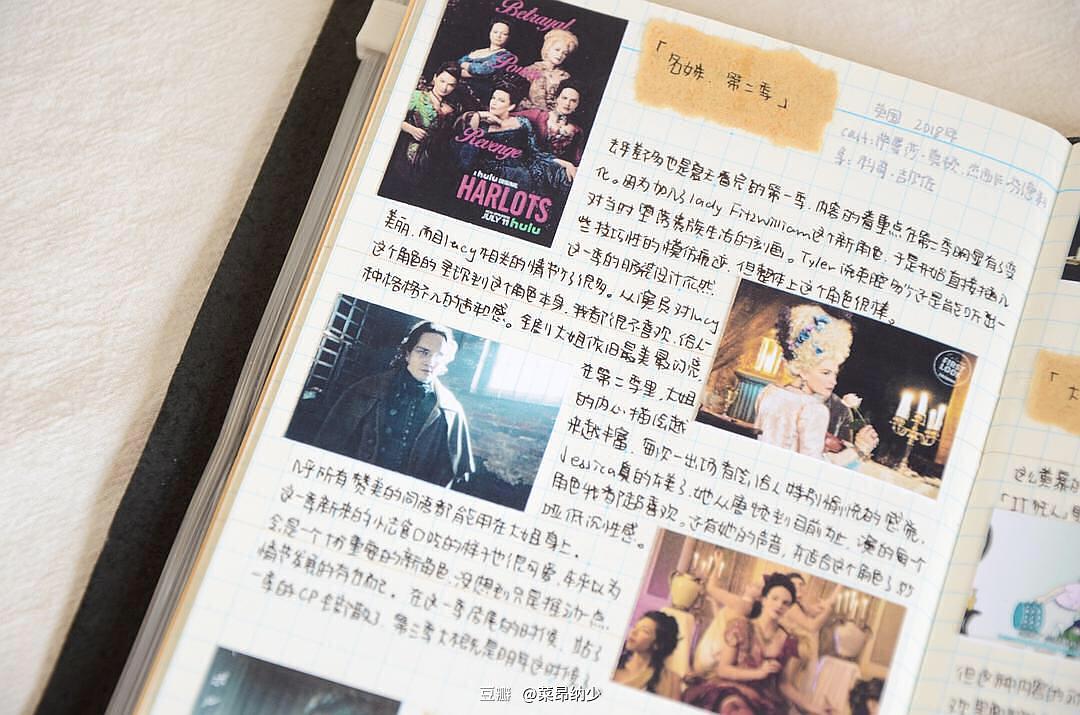 Betrayal
Power
Revenge
hulu ORIGINAL
HARLOTS
JULY 11 hulu
「名姝 第二季」
英国 2018年
cast: 萨曼莎·莫顿、杰西卡·芬德利
去年差不多也是夏天看完的第一季,内容的着重点在第二季明显有了变
化。因为加入了lady Fitzwilliam这个新角色,于是开始直接描儿
对当时堕落贵族生活的刻画。Tyler 演来腔多少还是能听出一
些技巧性的模仿痕迹,但整体上这个角色很棒。
这一季的服装设计依然
美丽,而且lucy相关的情节少了很多。从演员对lucy
这个角色的呈现到这个角色本身,我都很不喜欢,给人一
种格格不入的违和感。全剧大姐依旧最美最闪亮,
FIRST LOOK
在第二季里,大姐
的内心描绘越
来越丰富,每次一出场都会给人特别愉悦的感觉,
Jessica真的太美了,她从唐顿到目前为止,演的每个
角色我都喜欢。还有她的声音,太适合这个角色了
哑低沉性感。
几乎所有赞美的词语都能用在大姐身上。
这一季新来的小法官口吃的样子也很可爱,本来以为
会是一个推动重要的新角色,没想到只是推动一点
情节发展的有力而已。在这一季结尾的时候,站了
一季的CP全部散了,第三季大概就是明年这时候
这么羞暴的
「IT狂人
但这种内容的
欢里
豆瓣 @菜昂纳少